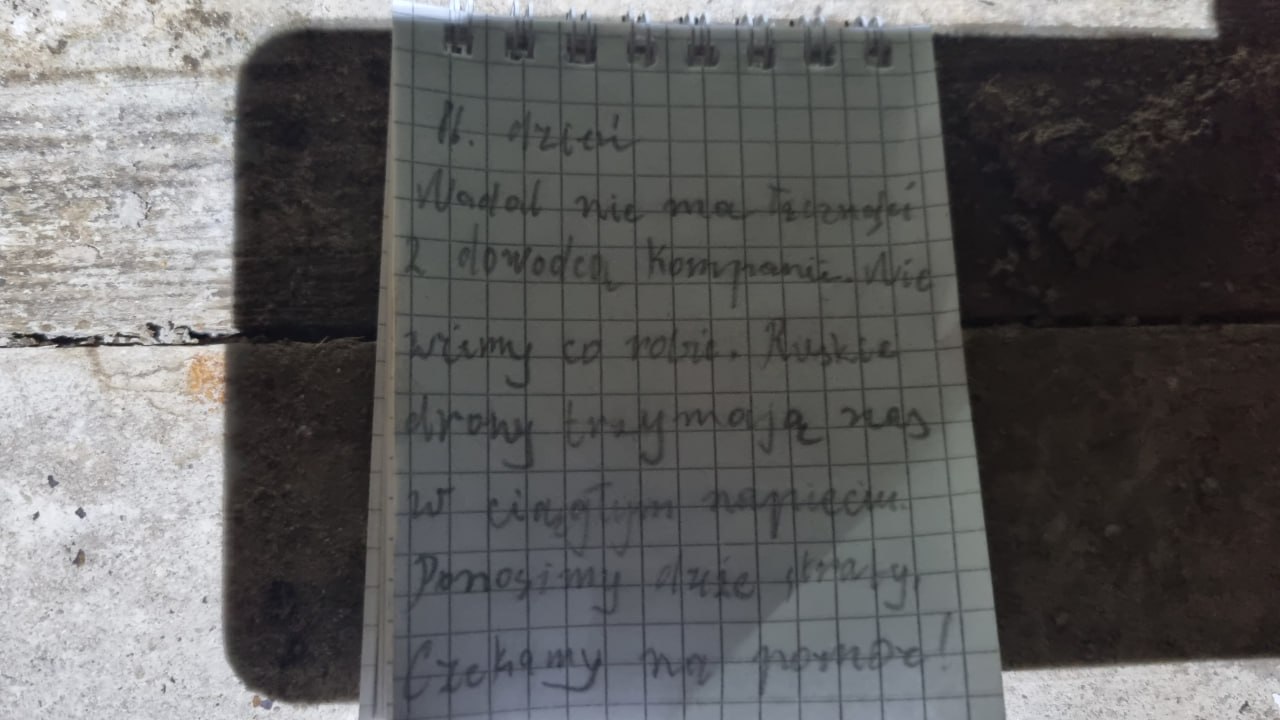 11. dzień
Nadal nie ma łączności
z dowódcą kompanii. Nie
wiemy co robić. Ruskie
drony trzymają nas
w ciągłym napięciu.
Ponosimy duże straty,
Czekamy na pomoc!